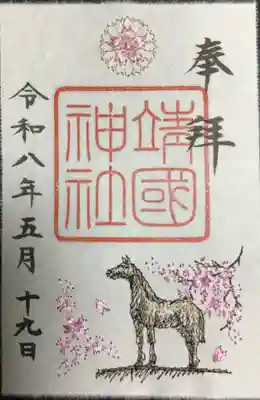 奉拝
靖國
神社
令和八年五月十九日